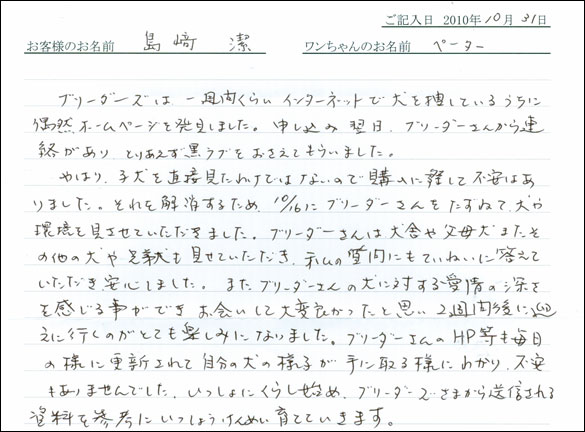 ご記入日 2010年10月31日
お客様のお名前 島﨑 潔 ワンちゃんのお名前 ペーター
ブリーダーズは、一週間くらいインターネットで犬を捜しているうちに
偶然ホームページを発見しました。申し込み翌日、ブリーダーさんから連
絡があり、とりあえず黒ラブをおさえてもらいました。
やはり、子犬を直接見たわけではないので購入に際して不安はあ
りました。それを解消するため、10/16にブリーダーさんをたずねて、犬や
環境を見させていただきました。ブリーダーさんは犬舎や父母犬またそ
の他の犬や兄弟犬も見せていただき、私の質問にもていねいに答えて
いただき安心しました。またブリーダーさんの犬に対する愛情の深さ
を感じる事ができ、お会いして大変良かったと思い、2週間後に迎
えに行くのがとても楽しみになりました。ブリーダーさんのHP等も毎日
の様に更新されて自分の犬の様子が手に取る様にわかり、不安
もありませんでした。いっしょにくらし始め、ブリーダーズさまから送信される
資料を参考にいっしょうけんめい育てていきます。